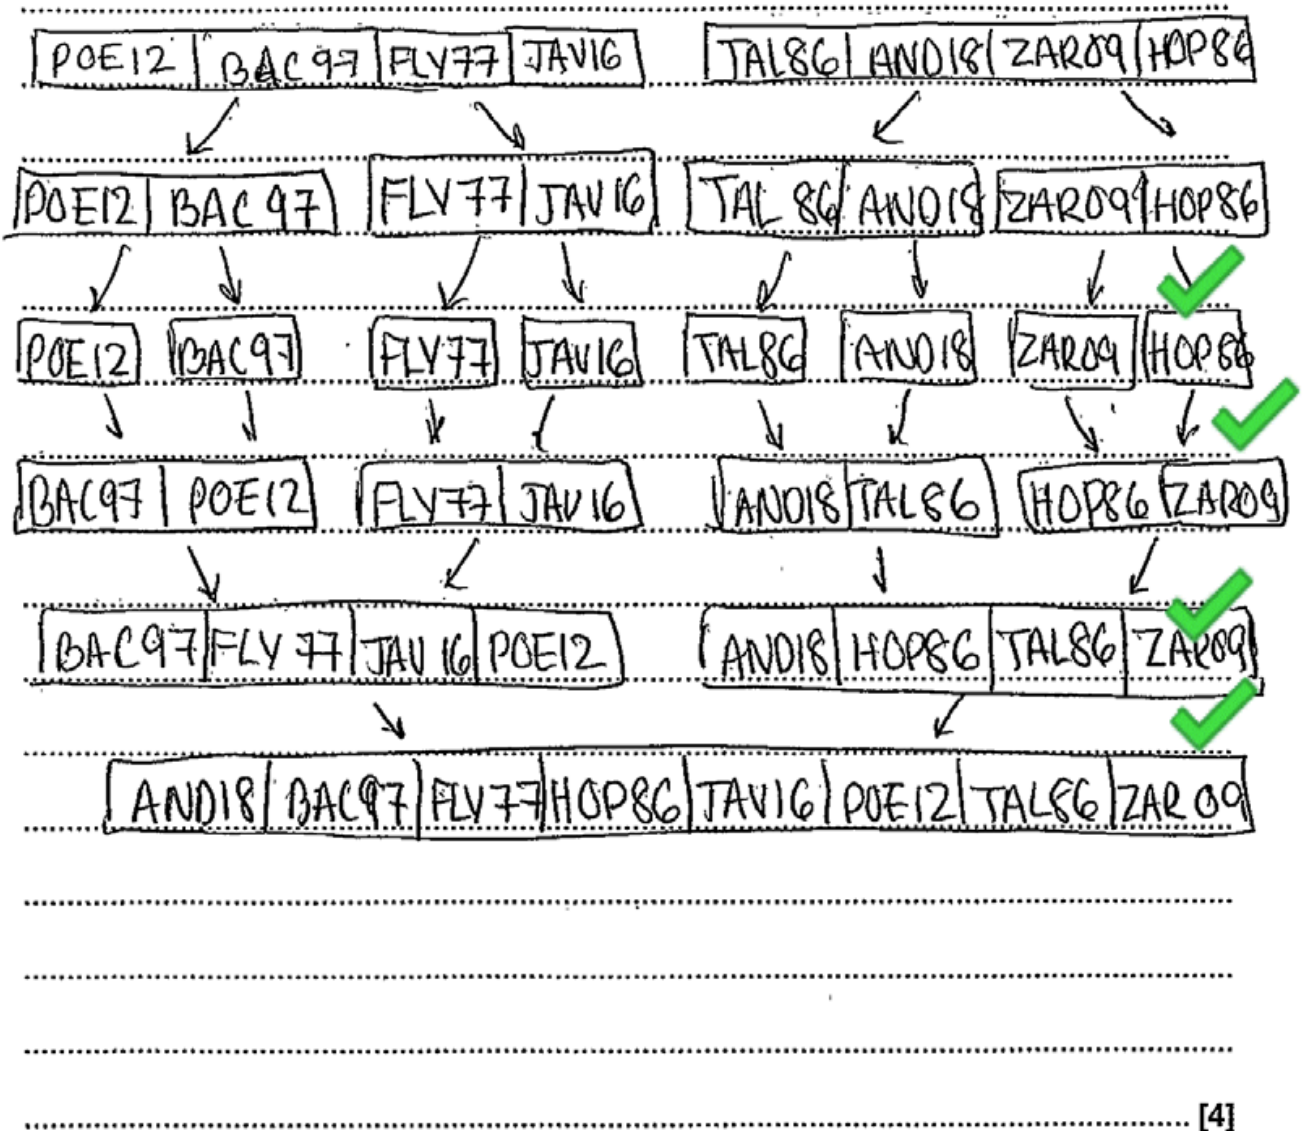 POE12 BAC97 FLY77 JAV16 TAL86 AND18 ZAR09 HOP86
POE12 BAC97 FLY77 JAV16 TAL86 AND18 ZAR09 HOP86
POE12 BAC97 FLY77 JAV16 TAL86 AND18 ZAR09 HOP86
BAC97 POE12 FLY77 JAV16 AND18 TAL86 HOP86 ZAR09
BAC97 FLY77 JAV16 POE12 AND18 HOP86 TAL86 ZAR09
AND18 BAC97 FLY77 HOP86 JAV16 POE12 TAL86 ZAR09
[4]